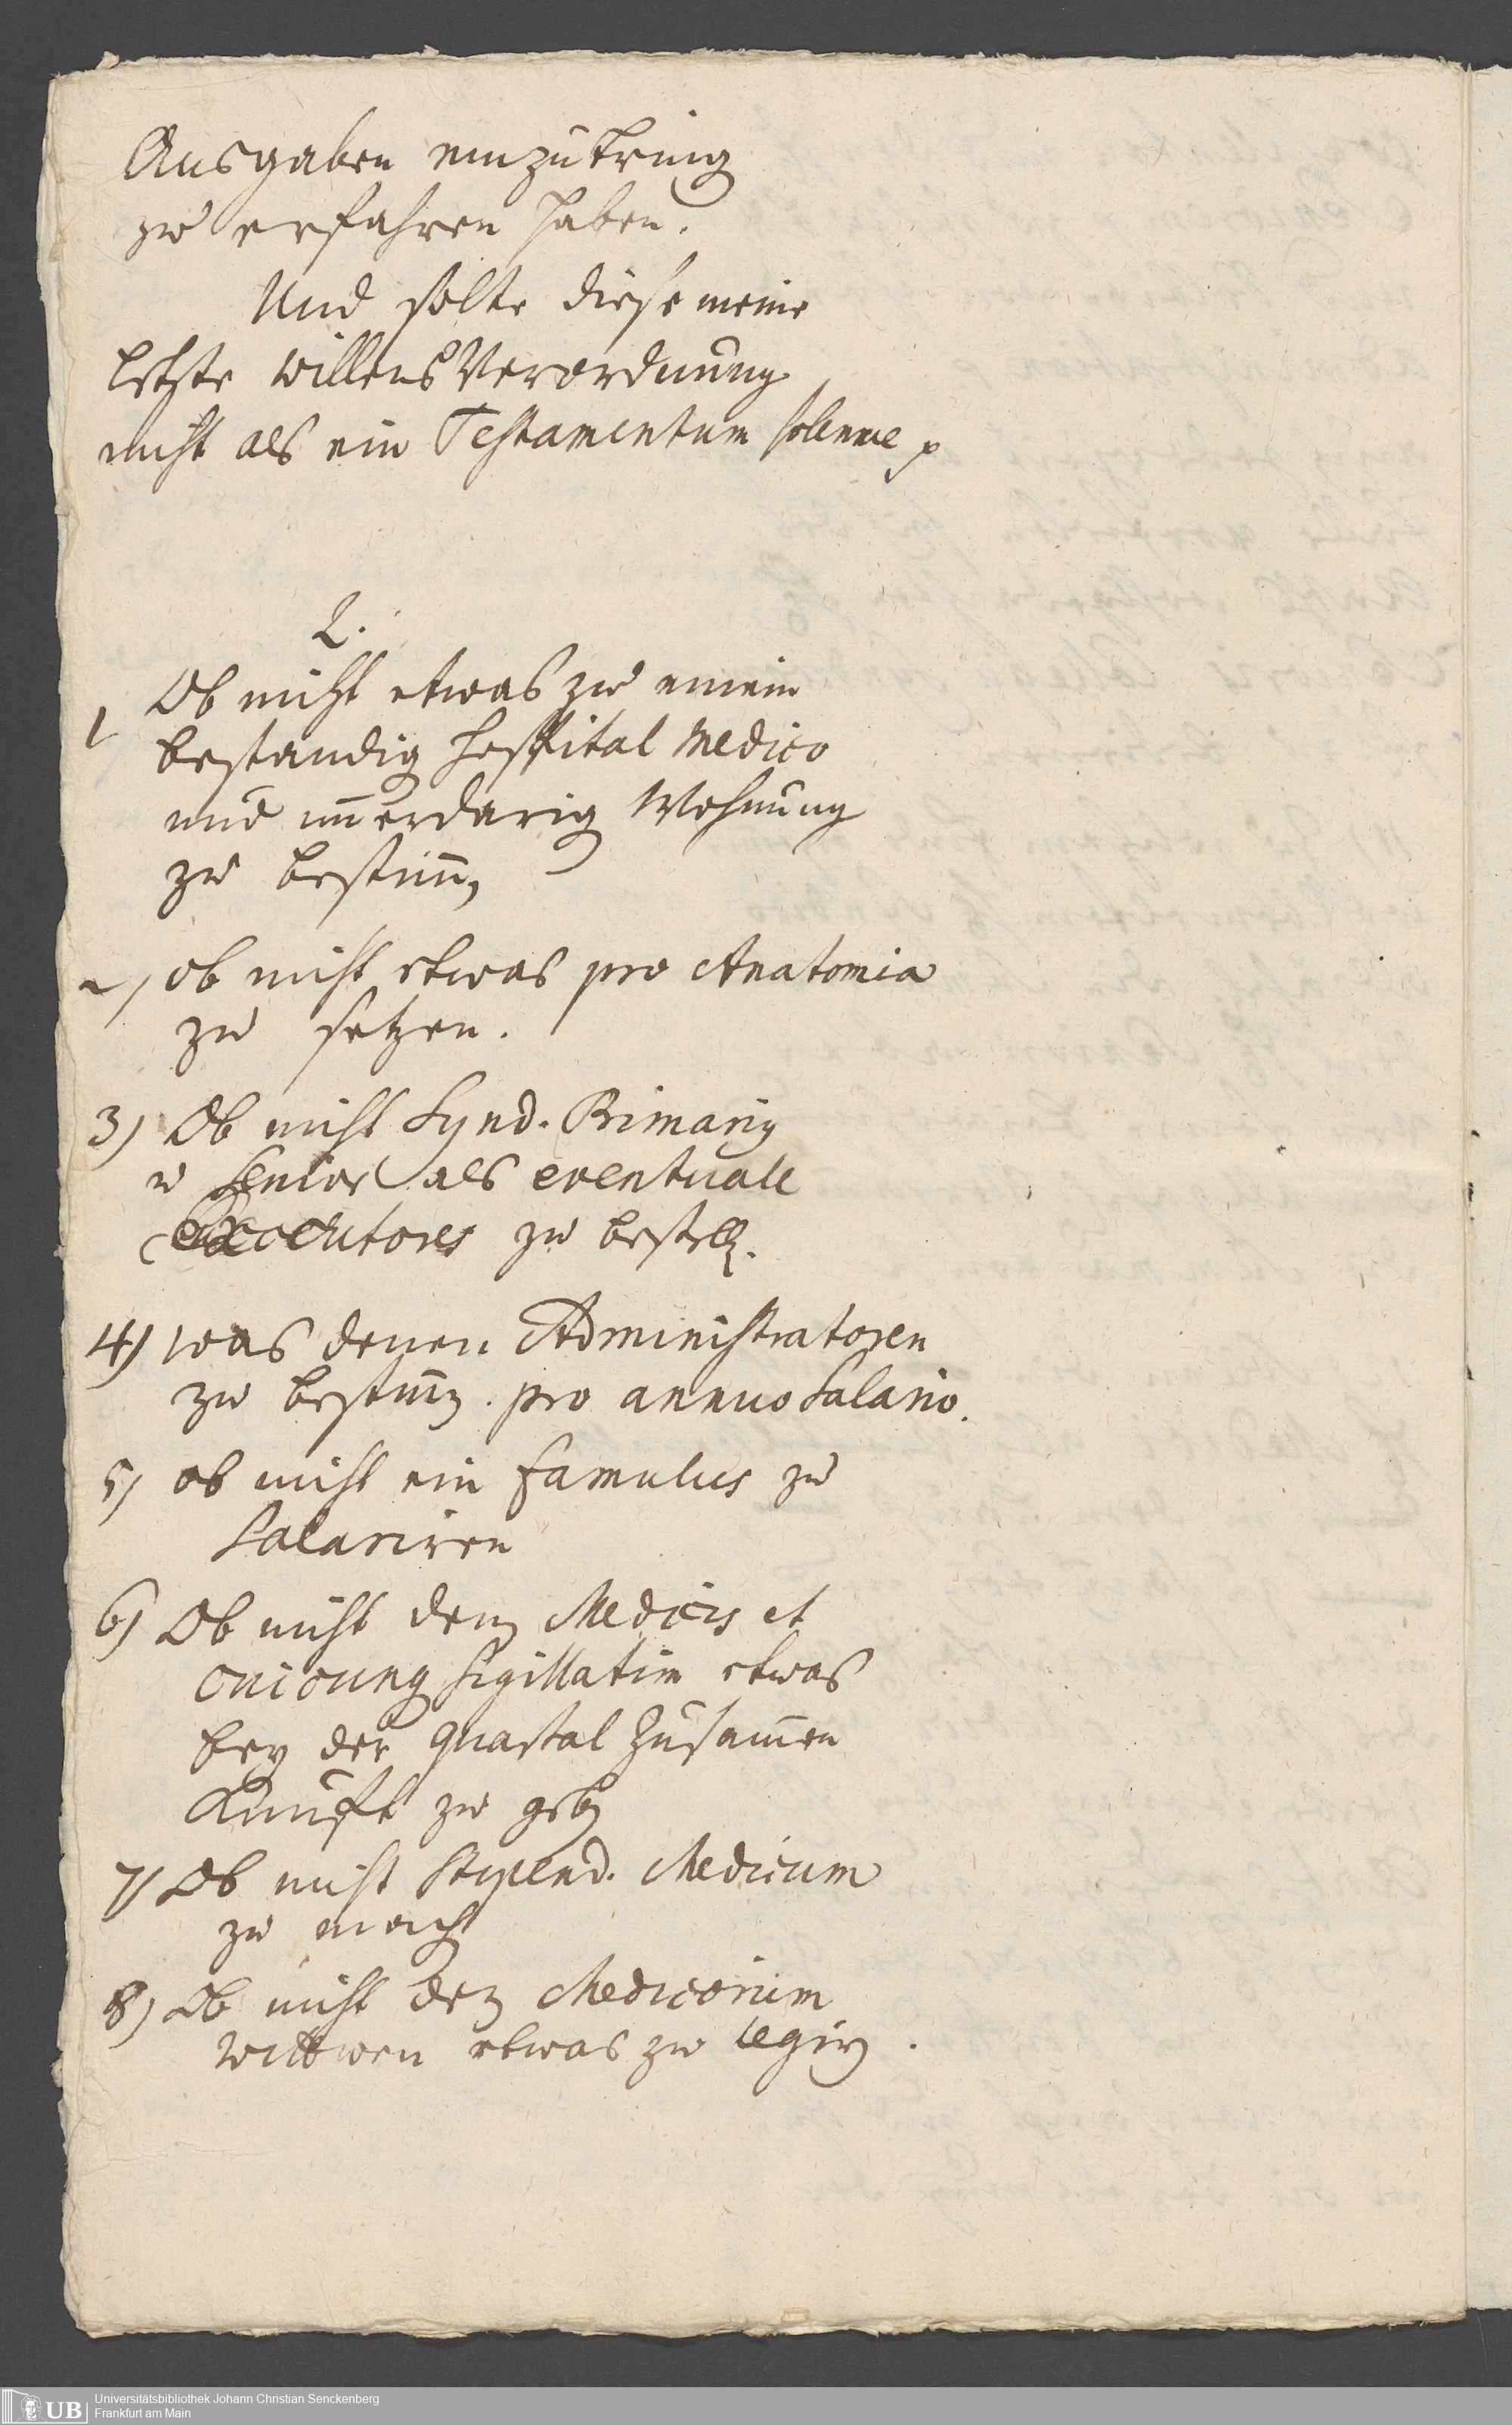 Ausgaben einzubring
zu erfahren haben.
Und solte diese meine
letzte willens Verordnung
nicht als ein Testamentum solenne p
2.
1 Ob nicht etwas zu einem
bestandig Hospital Medico
und im̅erdarig Wohnung
zu bestim̅
2) ob nicht etwas pro Anatomia
zu setzen.
3) Ob nicht Synd. Primarig
u Senior als eventuale
Executores zu bestell.
4) was denen Administratoren
zu bestim̅. pro annuo Salario.
5) ob nicht ein Famulus zu
Salariren
6) Ob nicht den Medicis et
sigillatim etwas
bey der Quartal Zusam̅en
Kunfft zu geb
7) Ob nicht Stipend. Medicum
zu mach
8) Ob nicht den Medicorum
Wittwen etwas zu legir.
UB
Universitätsbibliothek Johann Christian Senckenberg
Frankfurt am Main